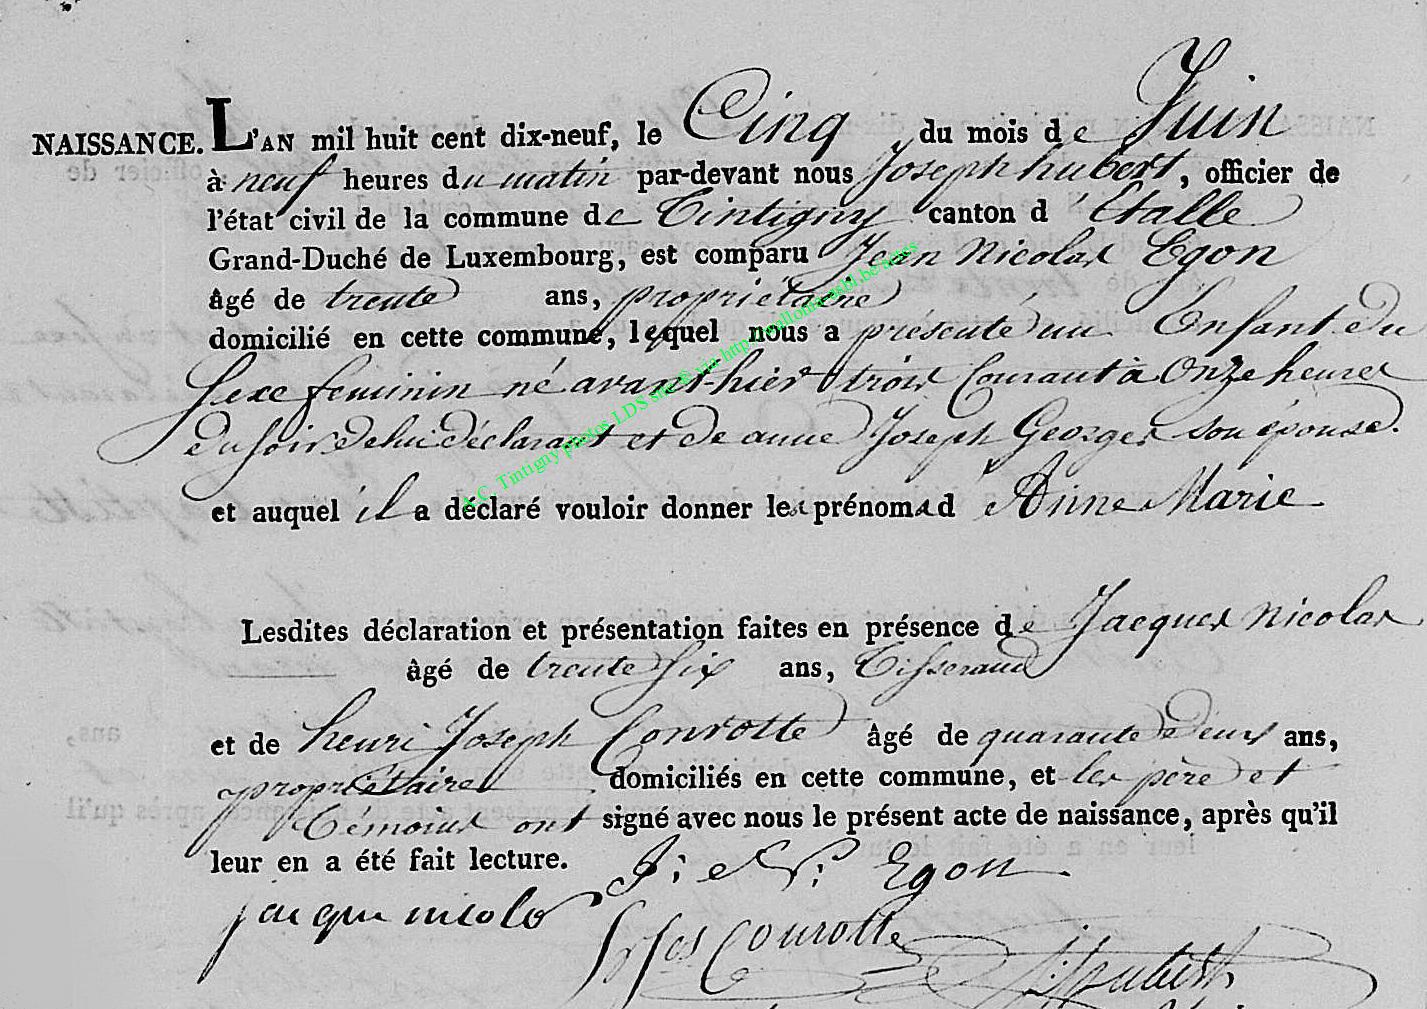 NAISSANCE. L'AN mil huit cent dix-neuf, le Cinq du mois de Juin
à neuf heures du matin par-devant nous Joseph hubert, officier de
l'état civil de la commune de Tintigny canton d'Etalle
Grand-Duché de Luxembourg, est comparu Jean Nicolas Egon
âgé de trente ans, propriétaire
domicilié en cette commune, lequel nous a présenté un Enfant du
Sexe feminin né avant-hier trois Courant à Onze heures
du soir de lui déclarant et de anne Joseph Georges son épouse.
et auquel il a déclaré vouloir donner les prénoms d'Anne Marie
Lesdites déclaration et présentation faites en présence de Jacques Nicolas
âgé de trente six ans, Tisserand
et de henri Joseph Conrotte âgé de quarante deux ans,
propriétaire domiciliés en cette commune, et les père et
Témoins ont signé avec nous le présent acte de naissance, après qu'il
leur en a été fait lecture. J: N: Egon
jacque nicola
Conrotte
J: Hubert
A.C. Tintigny photos LDS sncb via http://wallonia-asbl.be/actes